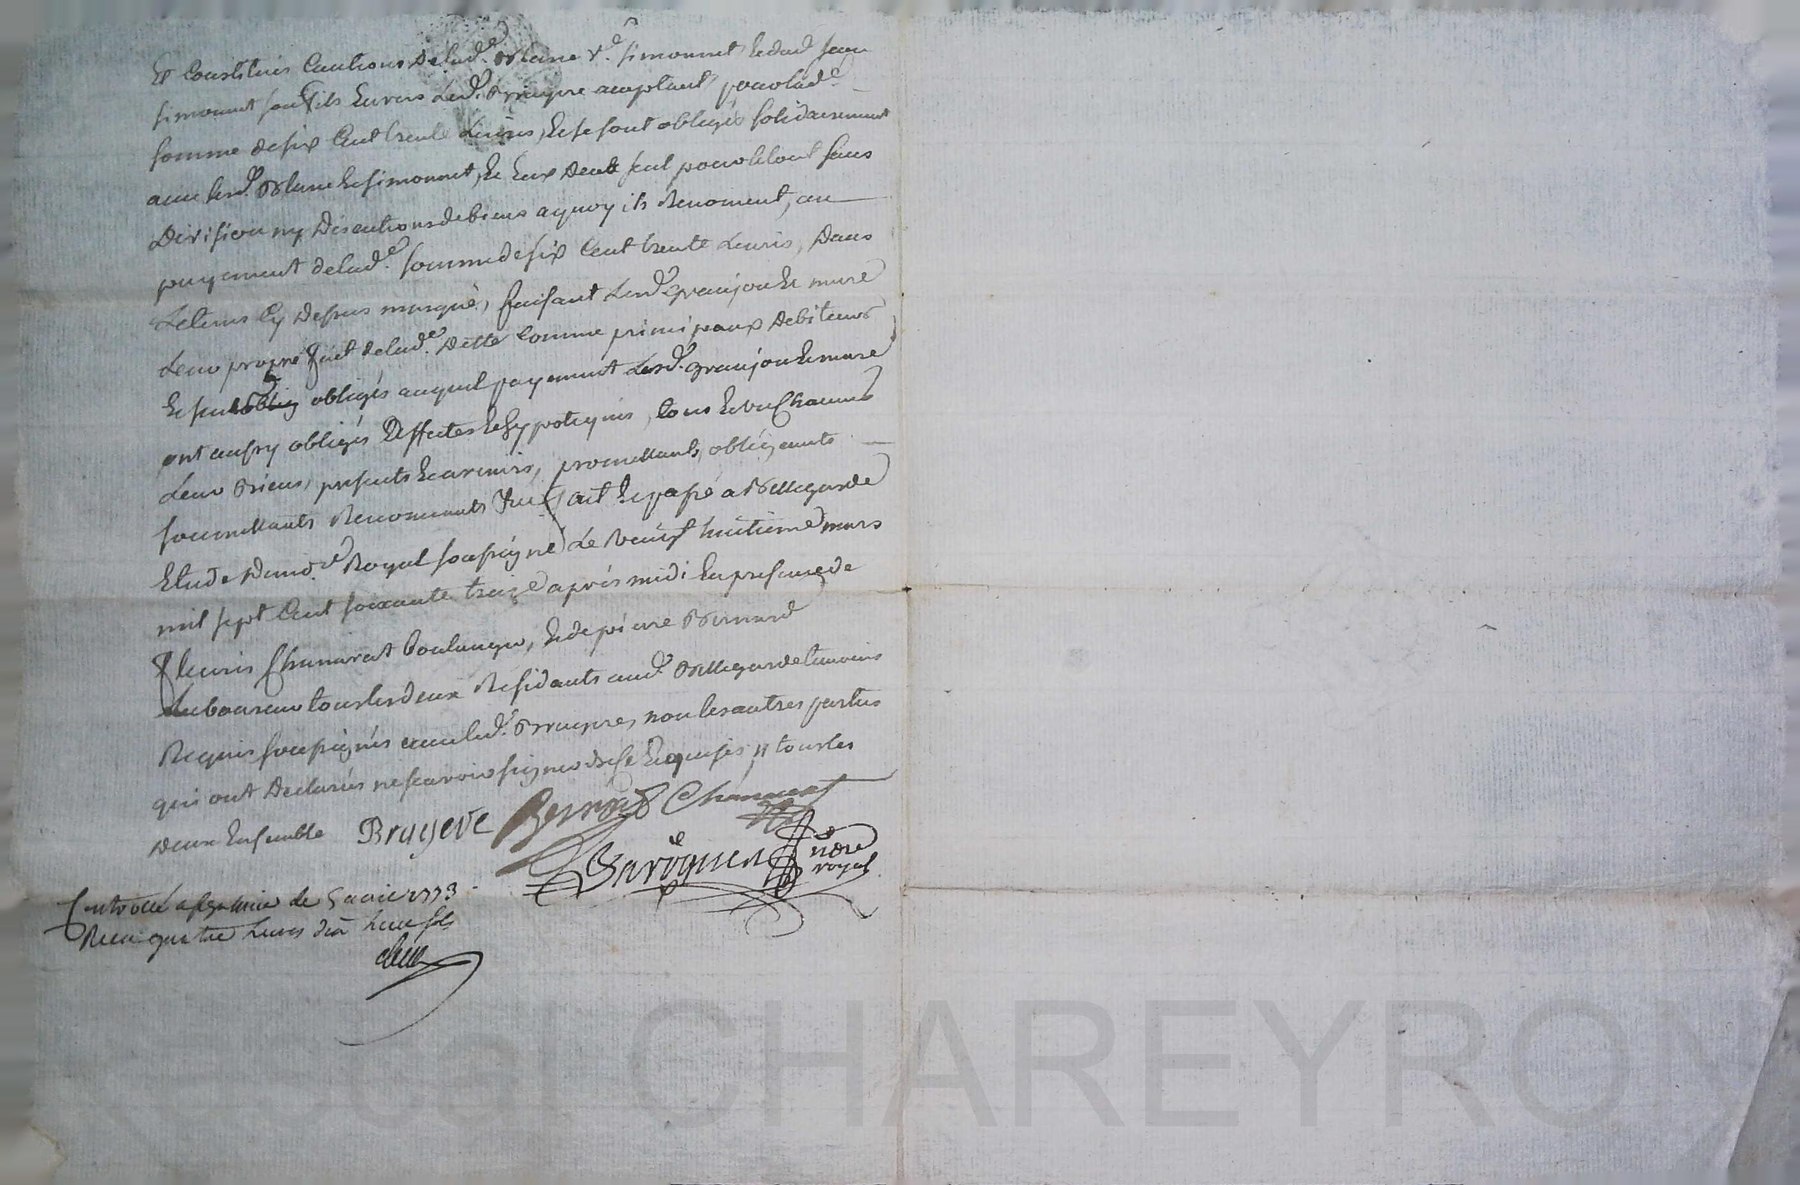 Et Constitués Cautions de lad.e Blanc v.e Simonnet Et dud Jean
Simonnet son fils Envers led.t Bruyere acceptant pour lad.e
somme de six Cent trente Livres, Et se sont obligés solidairement
avec lesd. Blanc Et Simonnet, Et Eux deux seul pour le tout sans
Division ny Discutions de biens a quoy ils Renoncent, au
payement de lad.e somme de six Cent trente Livres, Dans
Le terme Cy Dessus marqué, faisant Lesd. Granjon Et mure
Leur propre fait de lad.e Dette Comme principaux Debiteurs
Et seuls obligés auquel payement Lesd. Granjon Et mure
ont aussy obligés Affectes Et hypotequés, tous Et un Chacuns
Leur Biens, presents Et avenirs, promettants, obligeants
soumettants Renonceants fait Et passé a Bellegarde
Etude Du no.re Royal soussigné Le vingt huitieme mars
mil sept Cent soixante treize après midi En presence de
fleuris Chanavat boulanger, Et de pierre Bernard
Laboureur tous les deux Residants aud. Bellegarde temoins
Requis soussignés avec led. Bruyere, non les autres parties
qui ont Declarés ne scavoir signer de ce Enquises tous les
deux Ensemble Bruyere Bernard Chanavat
no.re
royal
Controllé a le 5 avril 1773
Recu quatre Livres dix huit sols